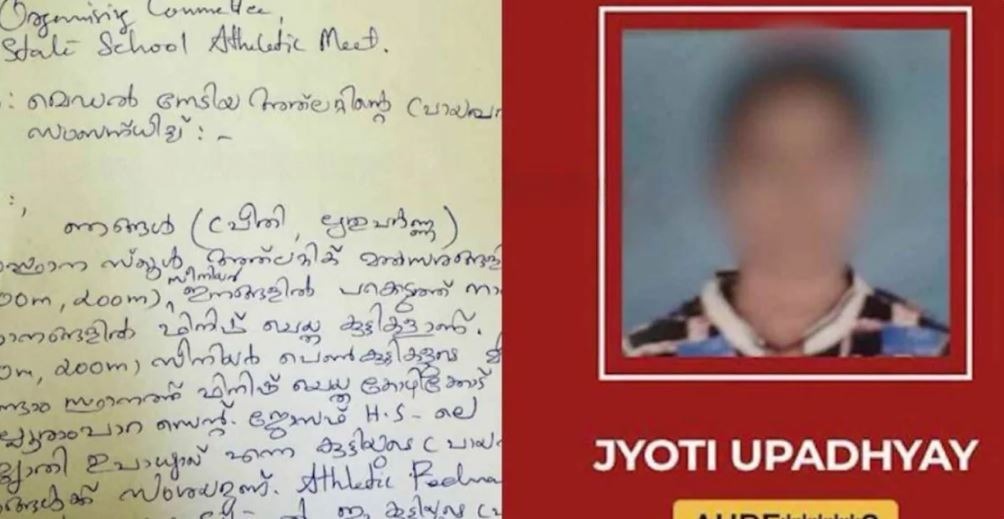 Organising Committee,
State School Athletic Meet.
: മെഡൽ നേടിയ അത്‌ലറ്റിന്റെ
സംബന്ധിച്ച് : -
:,
ഞങ്ങൾ (പ്രീതി,
സ്കൂൾ അത്‌ലറ്റിക് മത്സരങ്ങളി
സീനിയർ
00m, 200m), ഇനങ്ങളിൽ പങ്കെടുത്ത് നാ
ാനങ്ങളിൽ ഫിനിഷ് ചെയ്ത കുട്ടികളാണ്.
0m, 200m) സീനിയർ പെൺകുട്ടികളുടെ മ
സ്ഥാനത്ത് ഫിനിഷ് ചെയ്ത കോഴിക്കോട്
ല്ലൂരാംപാറ സെന്റ്. ജോസഫ് H.S- ലെ
്യോതി ഉപാധ്യായ് എന്ന കുട്ടിയുടെ പ്രായ
ങ്ങൾക്ക് സംശയമുണ്ട്. Athletic Federa
ഈ കുട്ടിയുടെ
JYOTI UPADHYAY